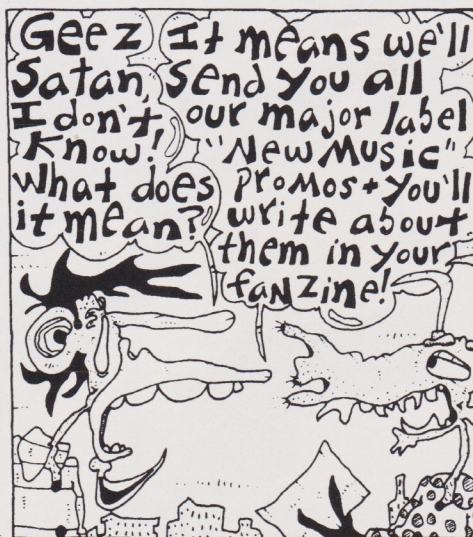 Geez
Satan,
I don't
Know!
What does
it mean?
It means we'll
Send you all
our major label
"New Music"
Promos + you'll
write about
them in your
faNziNe!